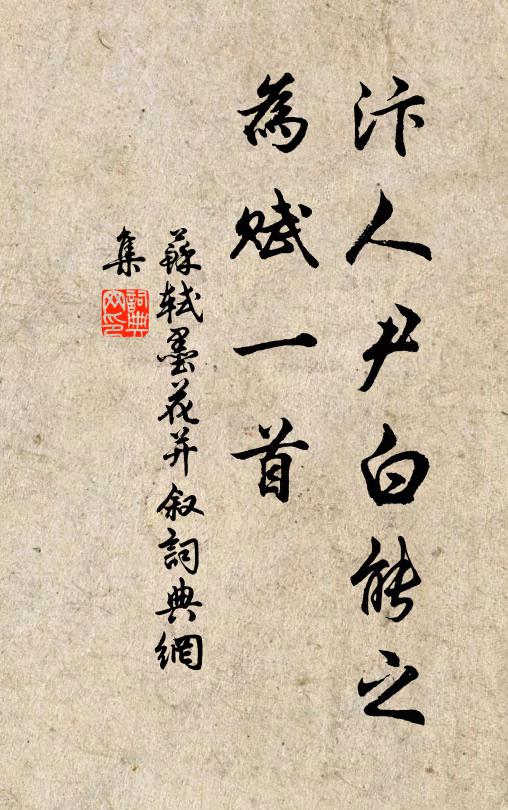 汴人尹白能之
為賦一首
蘇軾墨花并叙詞典網
集
詞典
网印